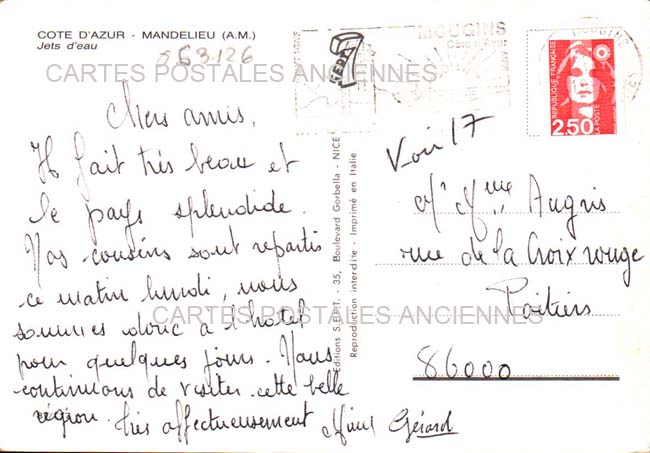 COTE D'AZUR - MANDELIEU (A.M.)
Jets d'eau
563126
MOUGINS
Côte d'Azur
REPUBLIQUE FRANÇAISE
2,50
LA POSTE
CARTES POSTALES ANCIENNES
Chers amis,
Il fait très beau et
le pays splendide.
Nos cousins sont repartis
ce matin lundi, nous
sommes donc à l'hotel
pour quelques jours. Nous
continuons de visiter cette belle
région. très affectueusement
Gérard
Editions S.E.P.T. - 35, Boulevard Gorbella - NICE
Reproduction interdite - Imprimé en Italie
Voir 17
Mr Mme Augris
rue de la Croix rouge
Poitiers
86000
CARTES POSTALES ANCIENNES